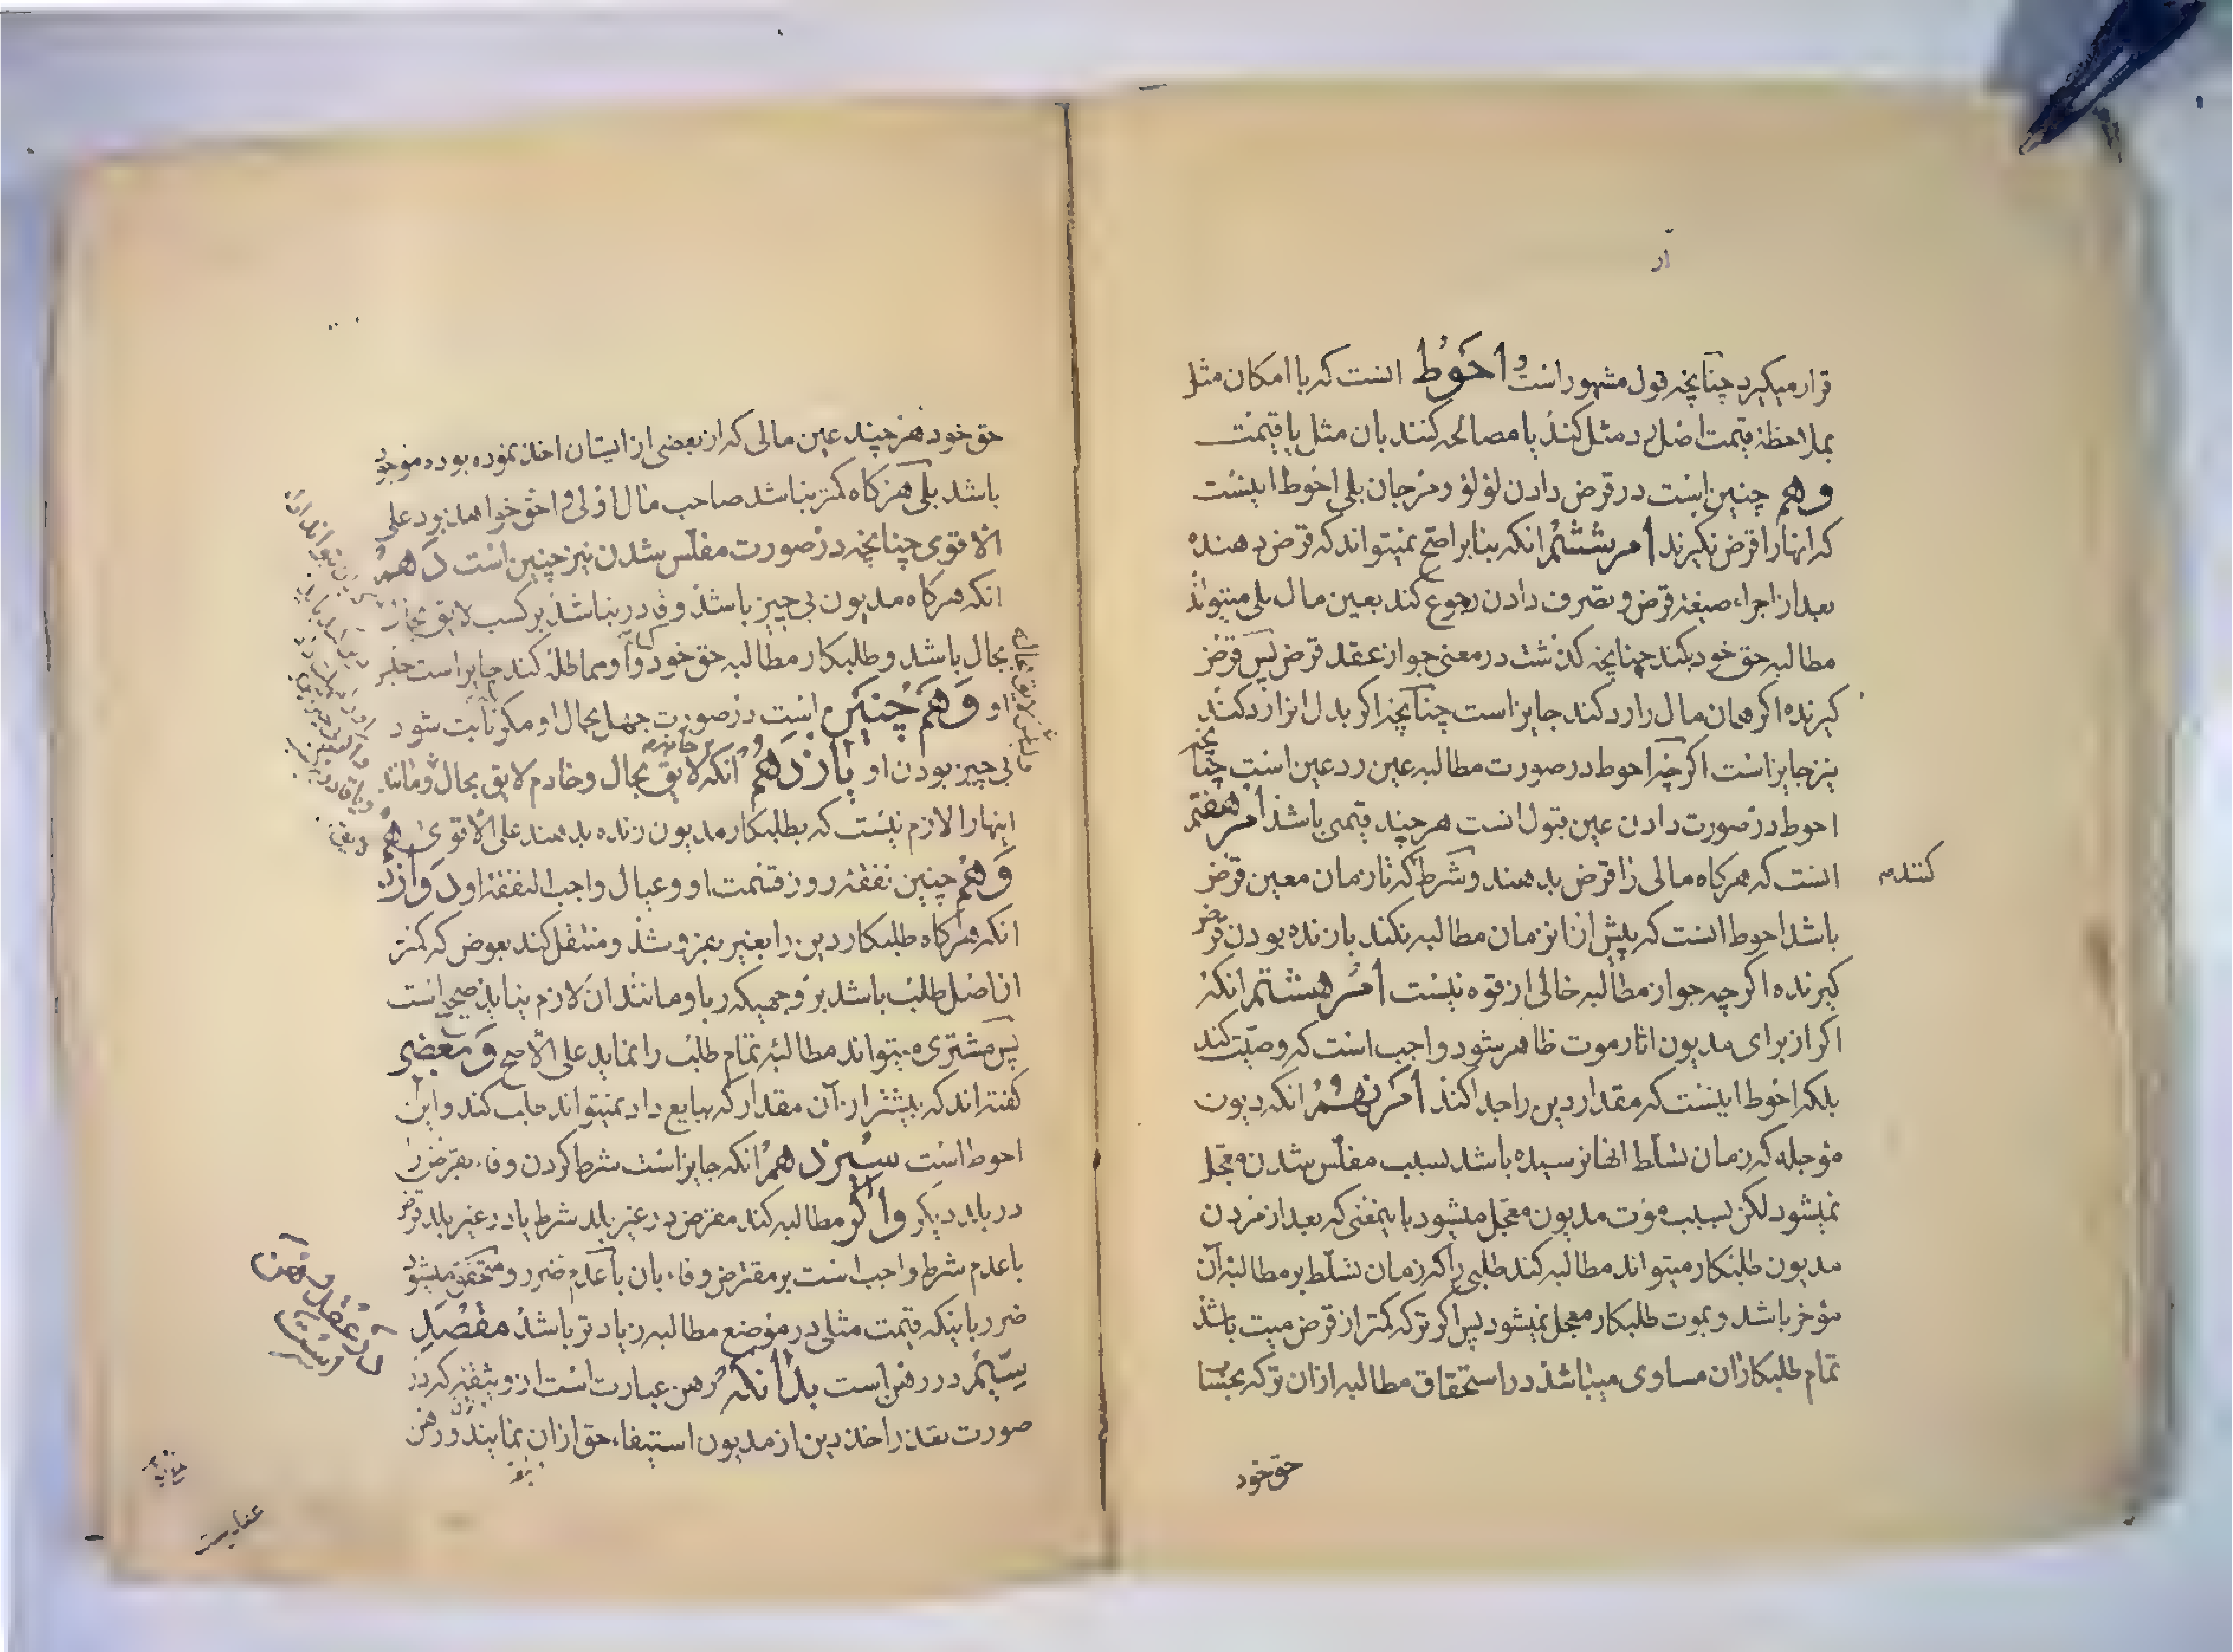 قرار میگیرد چنانچه قول مشهور است و احوط انست که با امکان مثل
بملاحظه قیمت اصل رد مثل کند یا مصالحه کنند بان مثل یا قیمت
و هم چنین است در قرض دادن لؤلؤ و مرجان بلی احوط اینست
که انها را قرض نگیرند امر ششم انکه بنا بر اصح نمیتواند که قرض دهنده
بعد از اجراء صیغه قرض و تصرف دادن رجوع کند بعین مال بلی میتواند
مطالبه حق خود بکند چنانچه کذشت در معنی جواز عقد قرض پس قرض
کیرنده اکر همان مال را رد کند جایز است چنانچه اکر بدل انرا رد کند
نیز جایز است اکرچه احوط در صورت مطالبه عین رد عین است چنانچه
احوط در صورت دادن عین قبول است هر چند قیمی باشد امر هفتم
انست که هرکاه مالی را قرض بدهند و شرط کنند که تا زمان معین قرض
باشد احوط انست که پیش از انزمان مطالبه نکند با زنده بودن قرض
کیرنده اکرچه جواز مطالبه خالی از قوه نیست امر هشتم انکه
اکر از برای مدیون اثار موت ظاهر شود واجب است که وصیت کند
بلکه احوط اینست که مقدار دین را جدا کند امر نهم انکه دیون
مؤجله که زمان تسلط انها نرسیده باشد بسبب مفلس شدن معجل
نمیشود لکن بسبب موت مدیون معجل میشود باینمعنی که بعد از مردن
مدیون طلبکار میتواند مطالبه کند طلبی را که زمان تسلط بر مطالبه آن
مؤخر باشد و بموت طلبکار معجل نمیشود پس اکر ترکه کمتر از قرض میت باشد
تمام طلبکاران مساوی میباشند در استحقاق مطالبه از ان ترکه بحساب
حق خود
حق خود هر چند عین مالی که از بعضی از ایشان اخذ نموده بوده موجود
باشد بلی هرکاه کمتر نباشد صاحب مال اولی و احق خواهد بود علی
الاقوی چنانچه در صورت مفلس شدن نیز چنین است دهم
انکه هرکاه مدیون بی چیز باشد و قادر نباشد بر کسب لایق
بحال باشد و طلبکار مطالبه حق خود و او مماطله کند جایز است حبس
او و هم چنین است در صورت جهل بحال او مکر ثابت شود
بی چیز بودن او یازدهم انکه خانه لایق بحال و خادم لایق بحال و مانند
اینها را لازم نیست که بطلبکار مدیون زنده بدهند علی الاقوی
و هم چنین نفقه روز قسمت او و عیال واجب النفقه او دوازدهم
انکه هرکاه طلبکار دین را بغیر بفروشد و منتقل کند بعوض که کمتر
از اصل طلب باشد بر وجهیکه ربا و مانند ان لازم نیاید صحیح است
پس مشتری میتواند مطالبه تمام طلب را نماید علی الاصح و بعضی
کفته اند که بیشتر از آن مقدار که ببایع داد نمیتواند طلب کند و این
احوط است سیزدهم انکه جایز است شرط کردن وفاء بقرض را
در بلد دیکر و اکر مطالبه کند مقرض در غیر بلد شرط یا در غیر بلد قرض
با عدم شرط واجب است بر مقترض وفاء بان با عدم ضرر و متحقق میشود
ضرر باینکه قیمت مثلی در موضع مطالبه زیادتر باشد مقصد
سیم در رهن است بدانکه رهن عبارت است از وثیقه که در
صورت تعذر اخذ دین از مدیون استیفاء حق از ان نمایند و رهن
در عقد رهن است